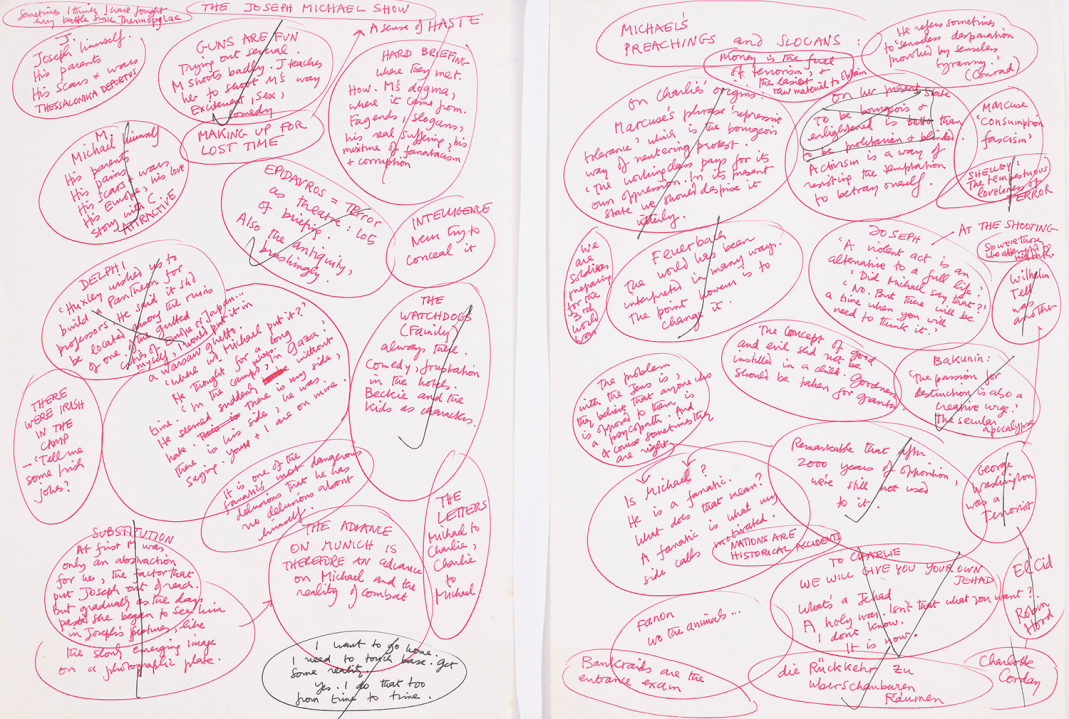 Sometimes I think I have fought
every battle since Thermopylae
THE JOSEPH MICHAEL SHOW
A sense of HASTE
J.
Joseph himself.
His parents
His scars + wars
THESSALONIKA DEPORTUS
GUNS ARE FUN
Trying out several.
M shoots badly. J teaches
her to shoot M's way
Excitement, sex,
comedy
HARD BRIEFING
Where they met.
How. M's dogma,
where it came from.
Fagends, slogans,
his real suffering, his
mixture of fanaticism
+ corruption
MAKING UP FOR
LOST TIME
M;
Michael himself
His parents
His pains
His scars, wars
His Europe, his love
story with C.
ATTRACTIVE
EPIDAVROS = TERROR
as theatre: lots
of briefing.
Also the antiquity,
pushingly.
INTELLIGENCE
Never try to
conceal it
DELPHI
'Huxley wishes us to
build a Pantheon for
professors. He said it shd
be located among the ruins
of one of the gutted
cities of Europe or Japan...
myself, I would put it in
a Warsaw ghetto.
'Where wd Michael put it?'
He thought for a long
time. 'In the camps in Gaza,'
He seemed suddenly without
hate. There is my side,
there is his side, he was
saying. Yours + I are on mine.
THE
WATCHDOGS
(Family)
always there.
Comedy, frustration
in the hotels.
Beckie and the
kids as characters.
THERE
WERE IRISH
IN THE
CAMP
– 'Tell me
some Irish
jokes?
It is one of the
fanatic's most dangerous
delusions that he has
no delusions about
himself.
THE
LETTERS
Michael to
Charlie,
Charlie
to
Michael
SUBSTITUTION
At first M was
only an abstraction
for her, the factor that
put Joseph out of reach.
But gradually as the days
pass she began to see him
in Joseph's features, like
the slowly emerging image
on a photographic plate.
THE ADVANCE
ON MUNICH IS
THEREFORE AN ADVANCE
on Michael and the
reality of combat
I want to go home.
I need to touch base. get
some reality.
Yes. I do that too
from time to time.
MICHAEL'S
PREACHINGS and SLOGANS:
He refers sometimes
to 'senseless desperation
provoked by senseless
tyranny.'
(Conrad)
Money is the fuel
of terrorism, +
the easiest
raw material to obtain
On Charlie's origins:
Marcuse's phrase repressive
tolerance, which is the bourgeois
way of neutering protest.
'The working class pays for its
own oppression. In its present
state we should despise it
utterly.
On her present state
To be bourgeois +
enlightened is better than
to be proletarian + blinded.
Activism is a way of
resisting the temptation
to betray oneself.
MARCUSE
'Consumption
fascism'
SHELLEY:
The tempestuous
loveliness of
TERROR
We
are
soldiers
preparing
for the
3rd
World
War
Feuerbach
The world has been
interpreted in many ways.
The point however is to
change it.
JOSEPH – AT THE SHOOTING
'A violent act is an
alternative to a full life,'
'Did Michael say that?'
'No. But there will be
a time when you will
need to think it.'
So were those
who attempted to
Wilhelm
Tell
was
another
The concept of good
and evil shd not be
instilled in a child. Goodness
should be taken for granted
Bakunin:
'The passion for
destruction is also a
creative urge.'
The secular
apocalypse
The problem
with the Jews is,
they believe that anyone who
is opposed to them is
a psycopath. And
of course sometimes they
are right.
Remarkable that after
2000 years of opposition,
we're still not used
to it.
George
Washington
was a
Terrorist
Is Michael?
He is a fanatic.
What does that mean?
A fanatic is what my
side calls motivated.
NATIONS ARE
HISTORICAL ACCIDENTS
TO CHARLIE
WE WILL GIVE YOU YOUR OWN
JEHAD
What's a Jehad
A holy war. Isn't that what you want?
I don't know.
It is now.
El Cid
Robin
Hood
Fanon
We the animals...
Bankraids are the
entrance exam
die Rückkehr zu
überschaubaren
Räumen
Charlotte
Corday